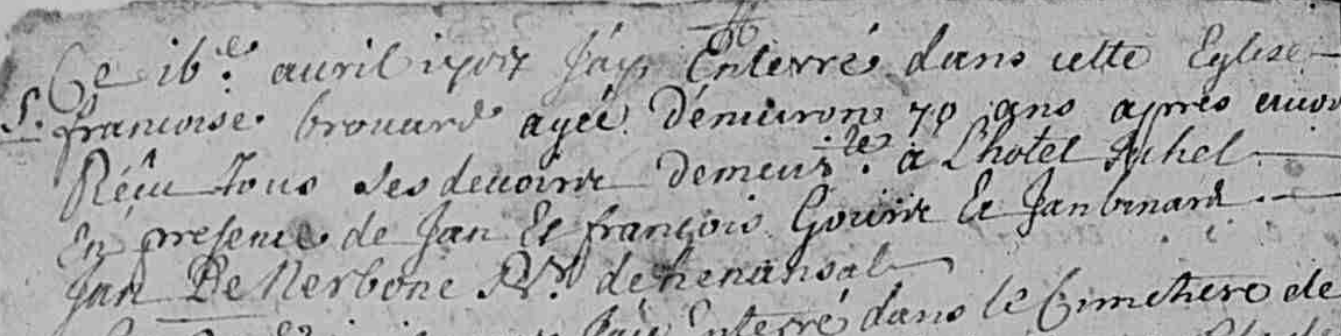 Ce 16.e avril 1707 J'ay Enterré dans cette Eglise
S. francoise brouard agée D'environ 70 ans apres avoir
Réçu Tous ses devoirs demeur.te a L'hotel Juhel
En presence de Jan Et françois Gouin Et Jan binard.
Jan De Nerbone R.r de henansal
Enterré dans le Cimetiere de